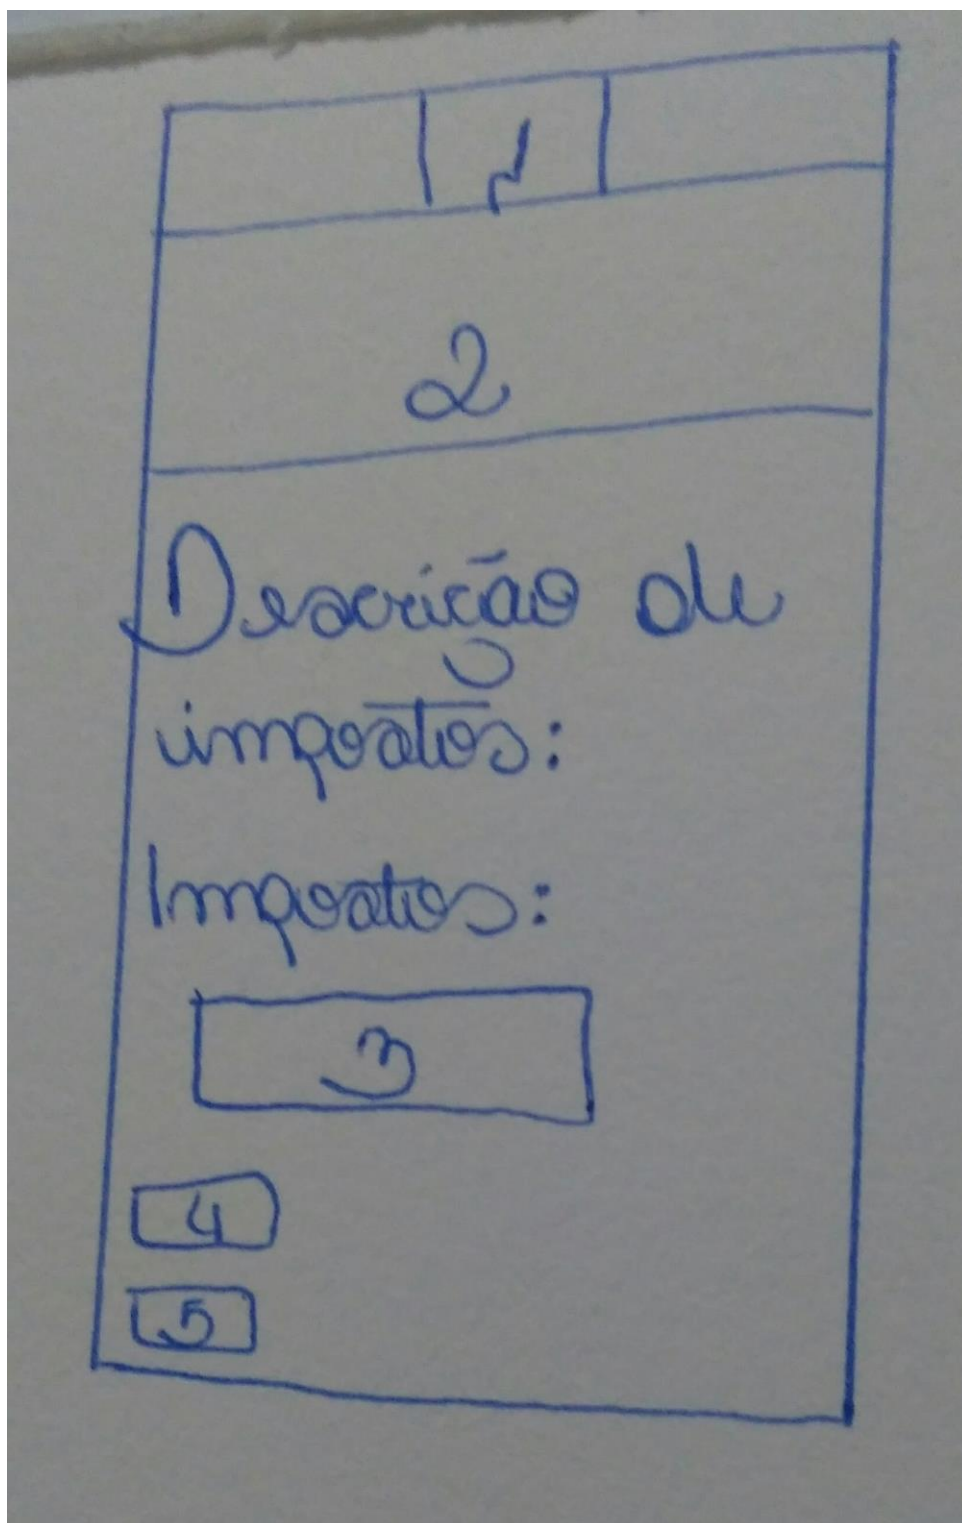 1
2
Descrição de
impostos:
Impostos:
3
4
5